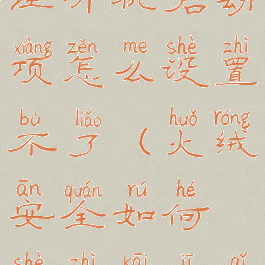 xiàng zěn me shè zhì
项怎么设置
bù liǎo huǒ róng
不了(火绒
ān quán rú hé
安全如何
shè zhì kāi jī